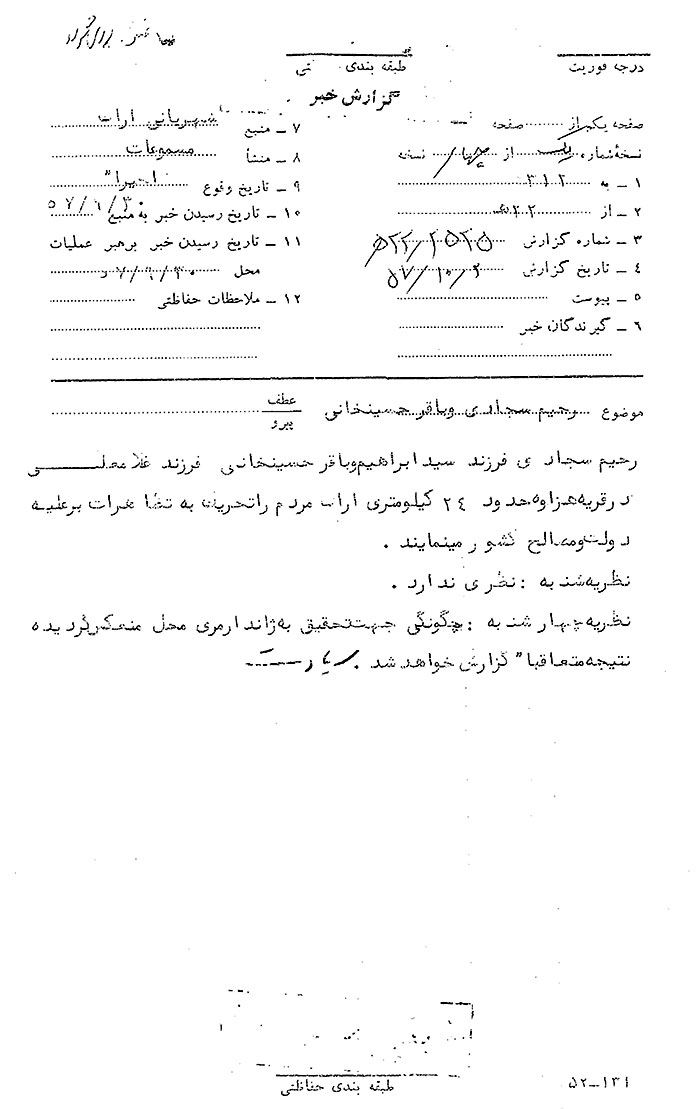 درجه فوریت
طبقه بندی
گزارش خبر
صفحه یکم از صفحه
نسخه شماره یک از چهار نسخه
۱ ـ به ۳۱۲
۲ ـ از ۲۲ ه
۳ ـ شماره گزارش ۲۵۲۵/۲۲ه
۴ ـ تاریخ گزارش ۵۷/۱۰/۲
۵ ـ پیوست
۶ ـ گیرندگان خبر
۷ ـ منبع شهربانی اراک
۸ ـ منشأ مسموعات
۹ ـ تاریخ وقوع اخیرا"
۱۰ ـ تاریخ رسیدن خبر به منبع
۱۱ ـ تاریخ رسیدن خبر برهبر عملیات
محل
۱۲ ـ ملاحظات حفاظتی
موضوع رحیم سجادی و باقر حسینخانی
عطف
پیرو
رحیم سجادی فرزند سید ابراهیم و باقر حسینخانی فرزند غلامعلی
در قریه هزاوه حدود ۲۴ کیلومتری اراک مردم را تحریک به تظاهرات بر علیه
دولت و مصالح کشور مینمایند .
نظریه شنبه : نظری ندارد .
نظریه چهارشنبه : چگونگی جهت تحقیق به ژاندارمری محل منعکس گردیده
نتیجه متعاقبا" گزارش خواهد شد .
طبقه بندی حفاظتی
۵۲ــ۱۳۱